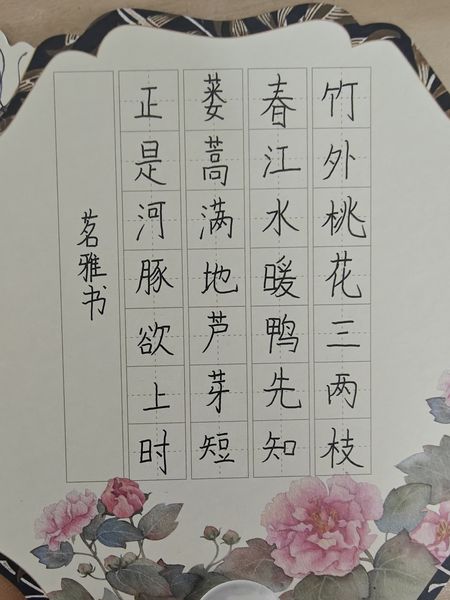 竹外桃花三两枝
春江水暖鸭先知
蒌蒿满地芦芽短
正是河豚欲上时
茗雅书